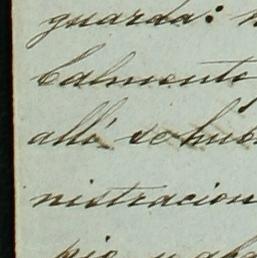 guarda:
balmente
allá se hu
nistracion
pio, y